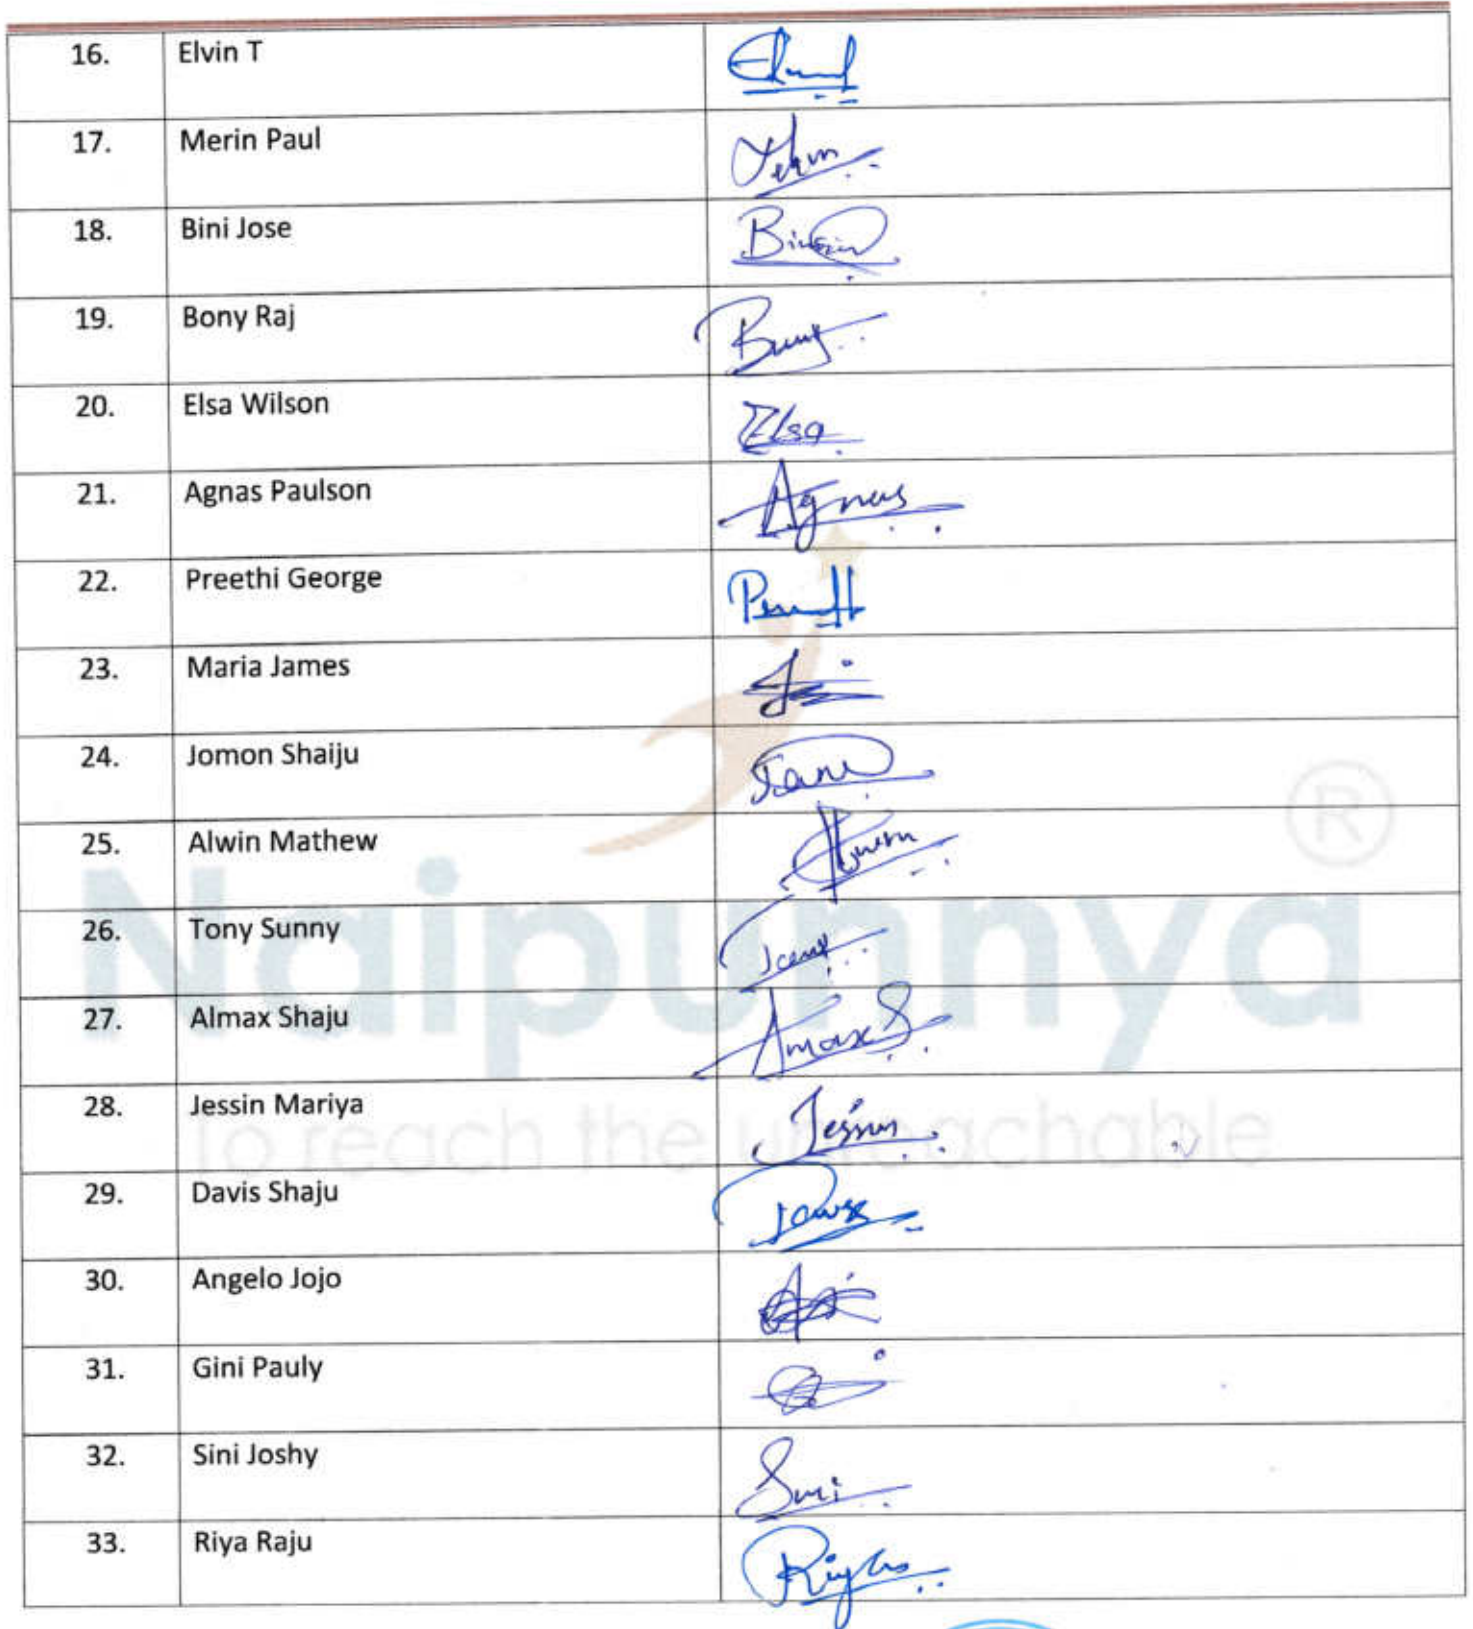 16. Elvin T
17. Merin Paul
18. Bini Jose
19. Bony Raj
20. Elsa Wilson Elsa
21. Agnas Paulson Agnas
22. Preethi George
23. Maria James
24. Jomon Shaiju
25. Alwin Mathew
26. Tony Sunny
27. Almax Shaju
28. Jessin Mariya Jessin
29. Davis Shaju
30. Angelo Jojo
31. Gini Pauly
32. Sini Joshy Sini
33. Riya Raju
Naipunnya ®
To reach the unreachable